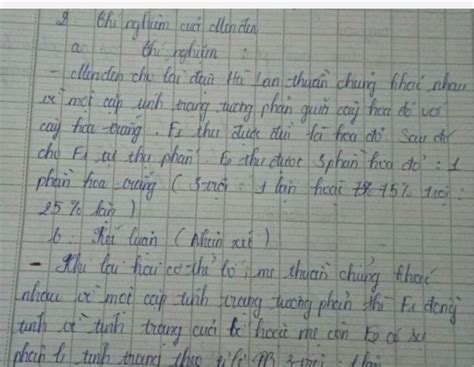 2. Thí nghiệm của Menđen
a. Thí nghiệm :
- Menđen cho lai đậu Hà Lan thuần chủng khác nhau
về một cặp tính trạng tương phản giữa cây hoa đỏ với
cây hoa trắng. F1 thu được đều là hoa đỏ sau đó
cho F1 tự thụ phấn. F2 thu được 3 phần hoa đỏ : 1
phần hoa trắng ( 3 trội : 1 lặn hoặc 75% trội :
25% lặn )
b. Kết luận ( Nhận xét )
- Khi lai hai cơ thể bố, mẹ thuần chủng khác
nhau về một cặp tính trạng tương phản thì F1 đồng
tính về tính trạng của bố hoặc mẹ còn F2 có sự
phân li tính trạng theo tỉ lệ 3 trội : 1 lặn